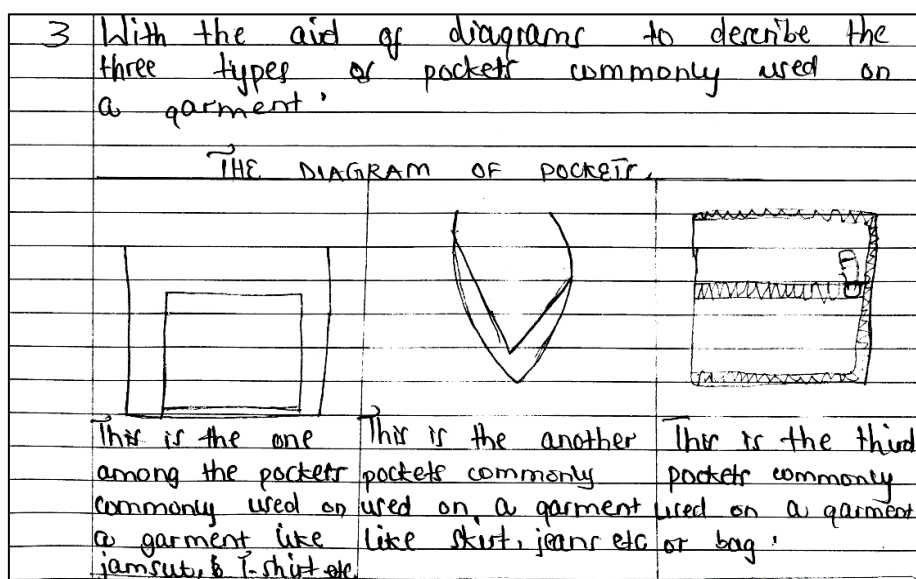 3 With the aid of diagrams to describe the
three types of pockets commonly used on
a garment.
THE DIAGRAM OF POCKETS.
This is the one
among the pockets
commonly used on
a garment like
jamsut, & T-shirt etc.
This is the another
pockets commonly
used on a garment
like skirt, jeans etc
This is the third
pockets commonly
used on a garment
or bag.